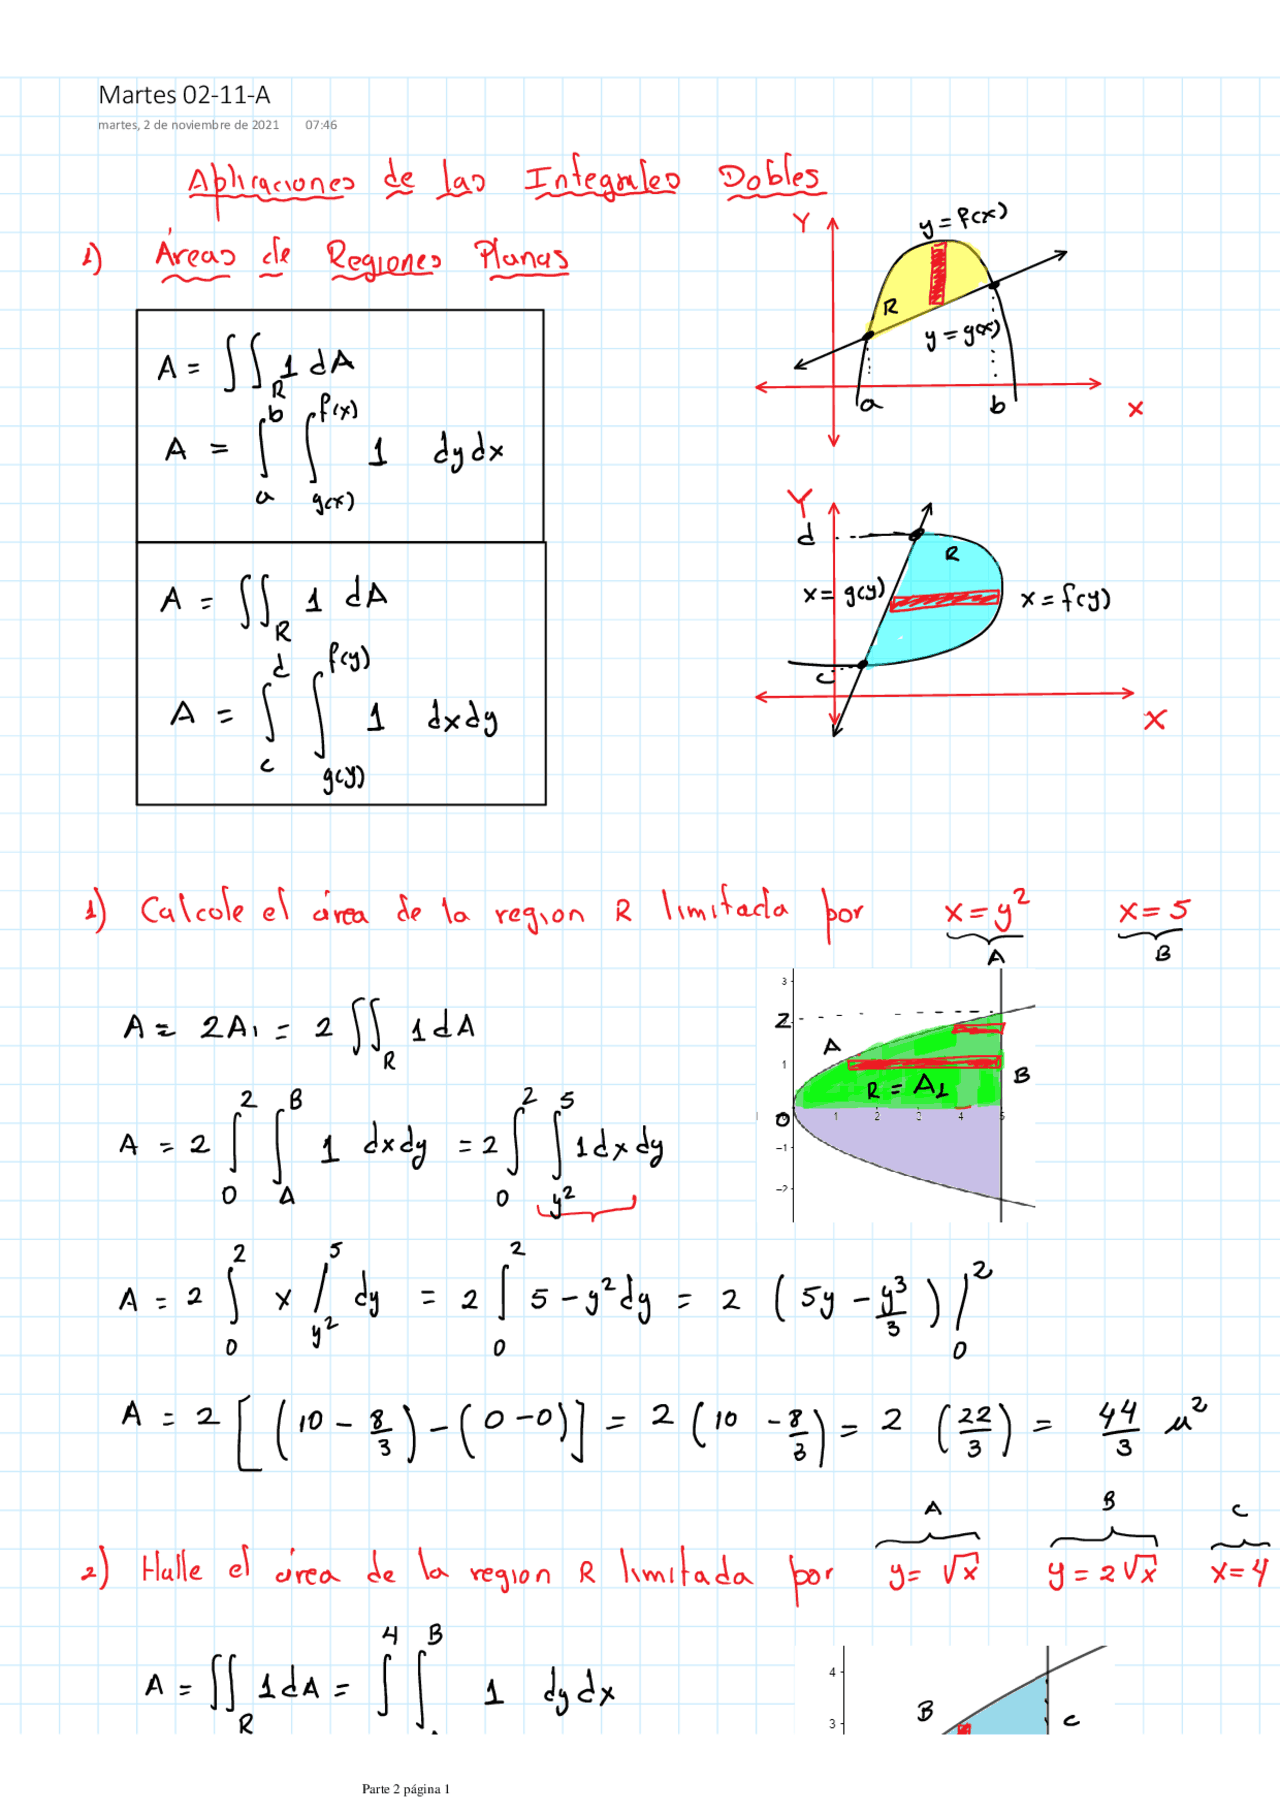 Martes 02-11-A
martes, 2 de noviembre de 2021 07:46
Aplicaciones de las Integrales Dobles
1) Áreas de Regiones Planas
A = ∫∫_R 1 dA
A = ∫_a^b ∫_{g(x)}^{f(x)} 1 dydx
Y
y = f(x)
R
y = g(x)
a b
X
A = ∫∫_R 1 dA
A = ∫_c^d ∫_{g(y)}^{f(y)} 1 dxdy
Y
d
R
x = g(y)
x = f(y)
c
X
1) Calcule el área de la region R limitada por x = y² x = 5
A B
A = 2A₁ = 2 ∫∫_R 1 dA
A = 2 ∫_0^2 ∫_A^B 1 dxdy = 2 ∫_0^2 ∫_{y²}^5 1 dx dy
3
2
A
1
B
R = A₁
0 1 2 3 4 5
-1
-2
A = 2 ∫_0^2 x /_{y²}^5 dy = 2 ∫_0^2 5 - y² dy = 2 (5y - y³/3) /_0^2
A = 2 [(10 - 8/3) - (0 - 0)] = 2 (10 - 8/3) = 2 (22/3) = 44/3 u²
A B C
2) Halle el área de la region R limitada por y = √x y = 2√x x = 4
A = ∫∫_R 1 dA = ∫^4 ∫^B 1 dy dx
4
3
B
C
Parte 2 página 1